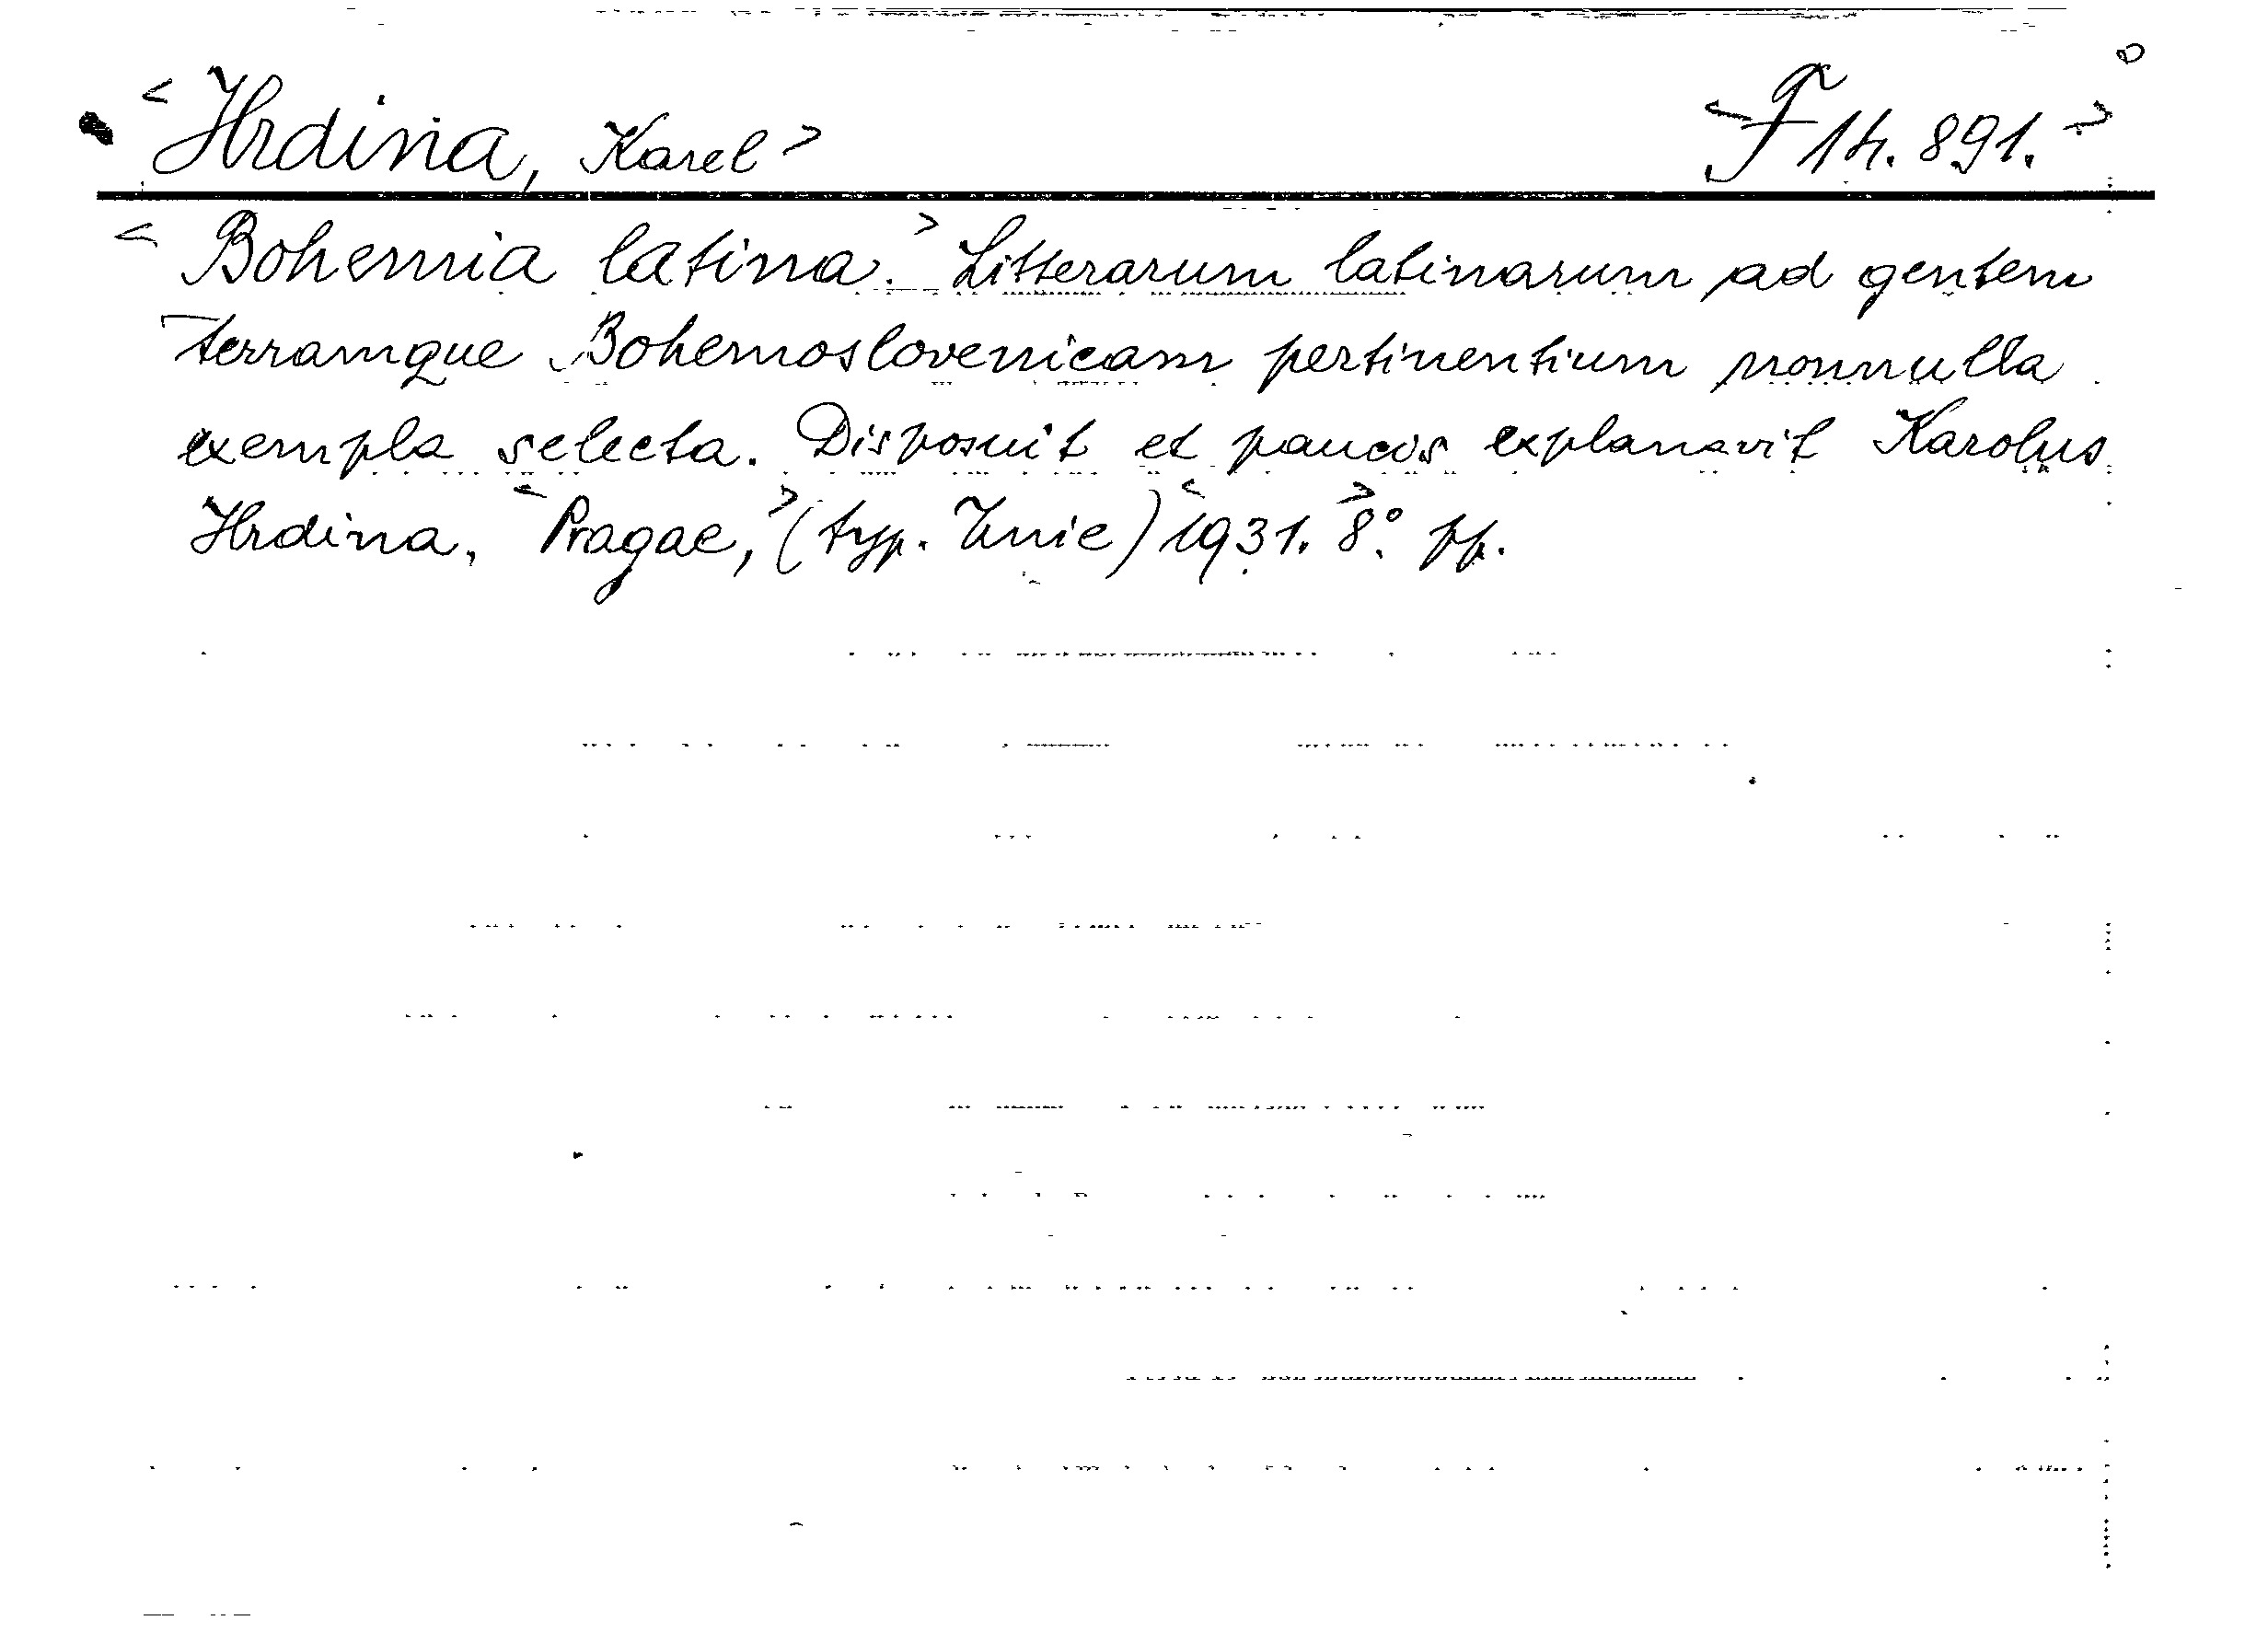 <Hrdina, Karel> <F 14.891.>
<Bohemia latina.> Litterarum latinarum ad gentem
terramque Bohemoslovenicam pertinentium nonnulla
exempla selecta. Disposuit et paucis explanavit Karolus
Hrdina, <Pragae,> (typ. Unie) <1931.> 8°. pp.